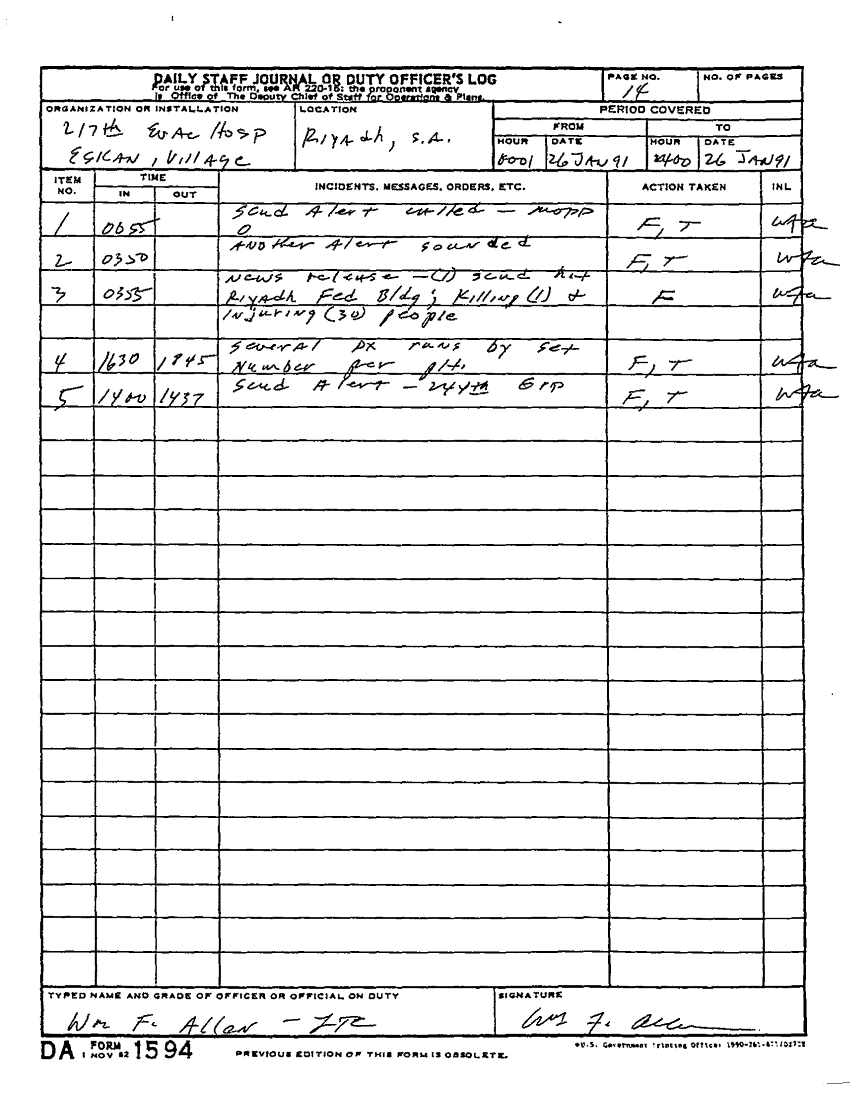 DAILY STAFF JOURNAL OR DUTY OFFICER'S LOG
For use of this form, see AR 220-15; the proponent agency
is Office of The Deputy Chief of Staff for Operations & Plans.
PAGE NO.
14
NO. OF PAGES
ORGANIZATION OR INSTALLATION
217th Evac Hosp
ESKAN, Village
LOCATION
Riyadh, S.A.
PERIOD COVERED
FROM
TO
HOUR
DATE
HOUR
DATE
0001
26 JAN 91
2400
26 JAN 91
ITEM NO.
TIME
IN
OUT
INCIDENTS, MESSAGES, ORDERS, ETC.
ACTION TAKEN
INL
1 0055 Scud Alert called - MOPP
0 F, T wfa
2 0350 ANOther Alert sounded F, T wfa
3 0355 News release - (1) scud hit
Riyadh Fed Bldg; Killing (1) & F wfa
Injuring (30) people
4 1630 1845 Several PX runs by set
Number per plt. F, T wfa
5 1400 1437 Scud Alert - 244th Grp F, T wfa
TYPED NAME AND GRADE OF OFFICER OR OFFICIAL ON DUTY
Wm F. Allan - LTC
SIGNATURE
Wm F. Allan
DA FORM 1594
1 NOV 62
PREVIOUS EDITION OF THIS FORM IS OBSOLETE.
*U.S. Government Printing Office: